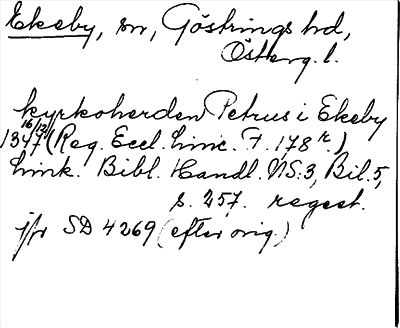 Ekeby, sn, Göstrings hd,
Österg. l.
kyrkoherden Petrus i Ekeby
16/12 1347 (Reg. Eccl. Linc. F. 178 r.)
Link. Bibl. Handl. NS:3, Bil. 5,
s. 257. regest.
jfr SD 4269 (efter orig.)